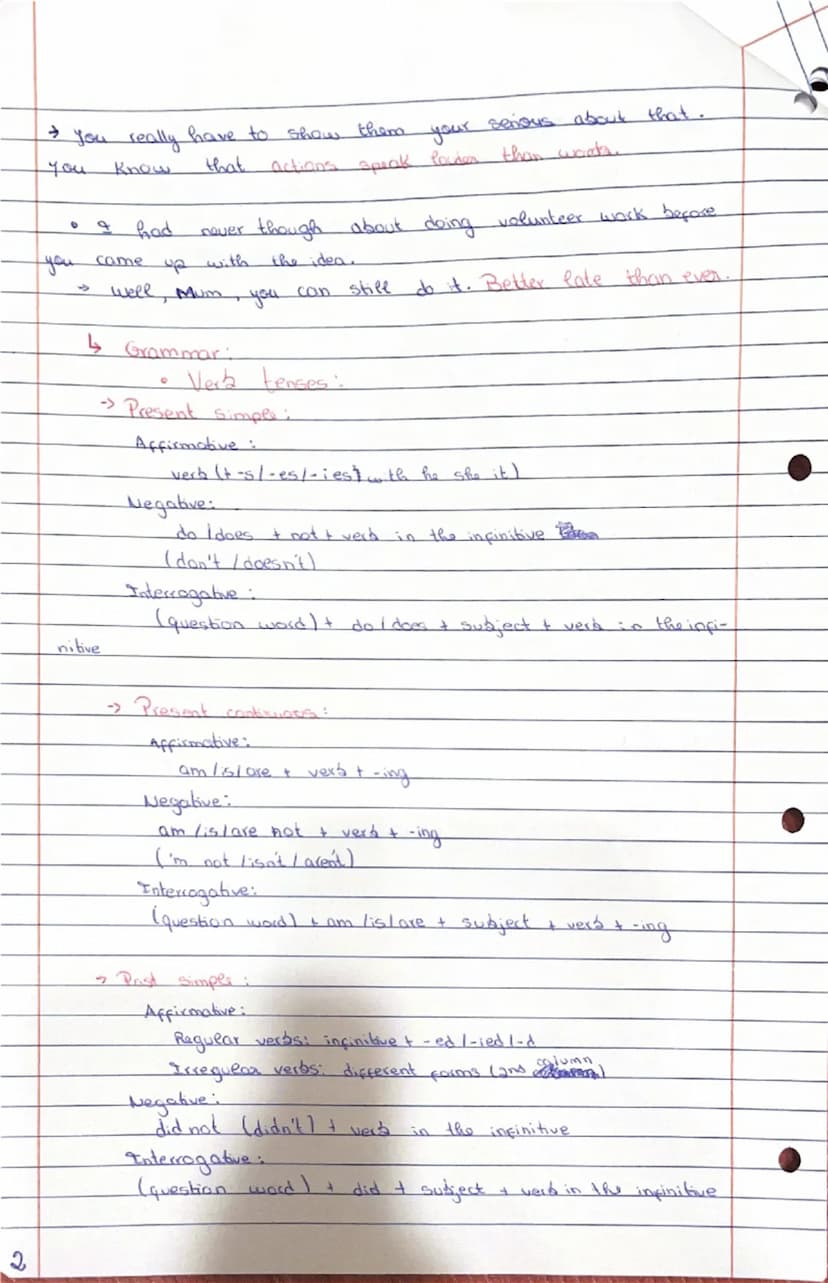 → You really have to show them your serious about that.
you know that actions speak louder than words.
• I had never though about doing volunteer work before
you came up with the idea.
→ Well, Mum, you can still do it. Better late than ever.
↳ Grammar:
• Verb tenses:
-> Present simple:
Affirmative:
verb (+ -s/-es/-ies) with he she it)
Negative:
do/does + not + verb in the infinitive
(don't/doesn't)
Interrogative:
(question word) + do/does + subject + verb in the infi-
nitive
-> Present continuous:
Affirmative:
am/is/are + verb + -ing
Negative:
am/is/are not + verb + -ing
('m not/isn't/aren't)
Interrogative:
(question word) + am/is/are + subject + verb + -ing
-> Past simple:
Affirmative:
Regular verbs: infinitive + -ed/-ied/-d
Irregular verbs: different forms (2nd column)
Negative:
did not (didn't) + verb in the infinitive
Interrogative:
(question word) + did + subject + verb in the infinitive
2